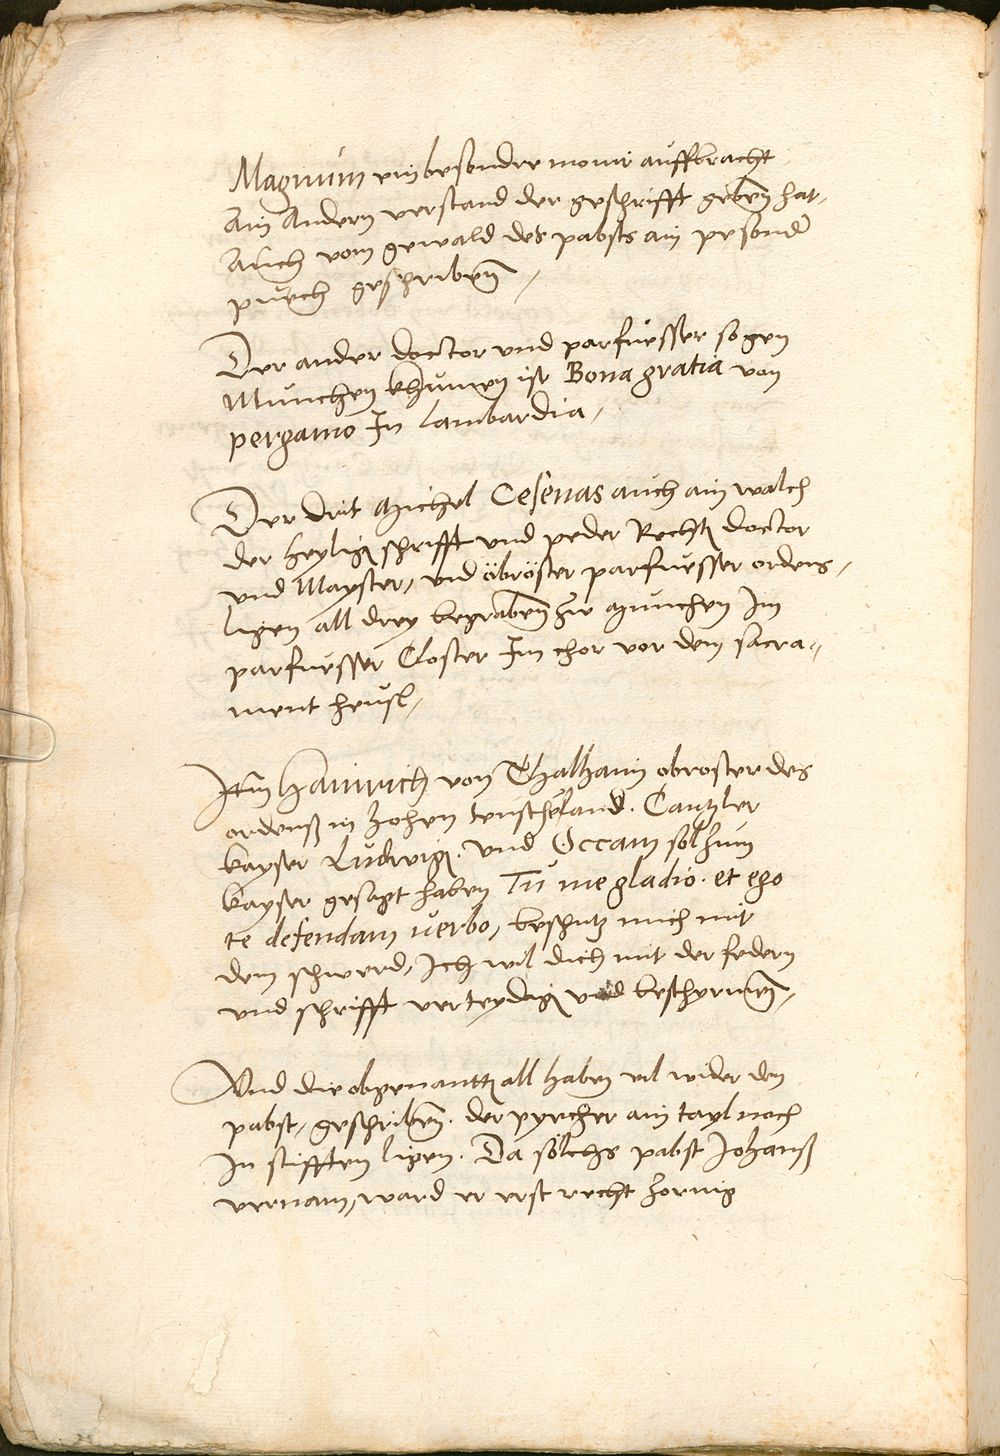 Magnum ein besonder monir auffbracht
Ain Andern verstand der geschrifft geben hat,
Auch vom gewald des pabsts ain pesonder
puech geschriben,
Der ander doctor und parfuesser so gen
Munchen khumen ist Bonagratia von
pergamo In lambardia,
Der drit Michel Cesenas auch ain walch
der heyligen schrifft und peder Rechten doctor
und Mayster, und öbröster parfuesser ordens,
ligen all drey begraben zw Munchen Im
parfuesser Closter Im chor vor dem sacra„
ment heusl,
Item Hainrich von Thalhaim obroster des
ordens in hohen teuschland. Cantzler
kayser Ludwigen. und Occam sol zum
kayser gesagt haben Tu me gladio. et ego
te defendam verbo, beschutz mich mit
dem schwerd, Ich wil dich mit der federn
und schrifft verteydigen und beschyrmen,
Und die obgenantten all haben vil wider den
pabst, geschriben. der pyecher ain tayl noch
In stifften ligen. Da sölchs pabst Johanß
vernam, ward er erst recht zornig